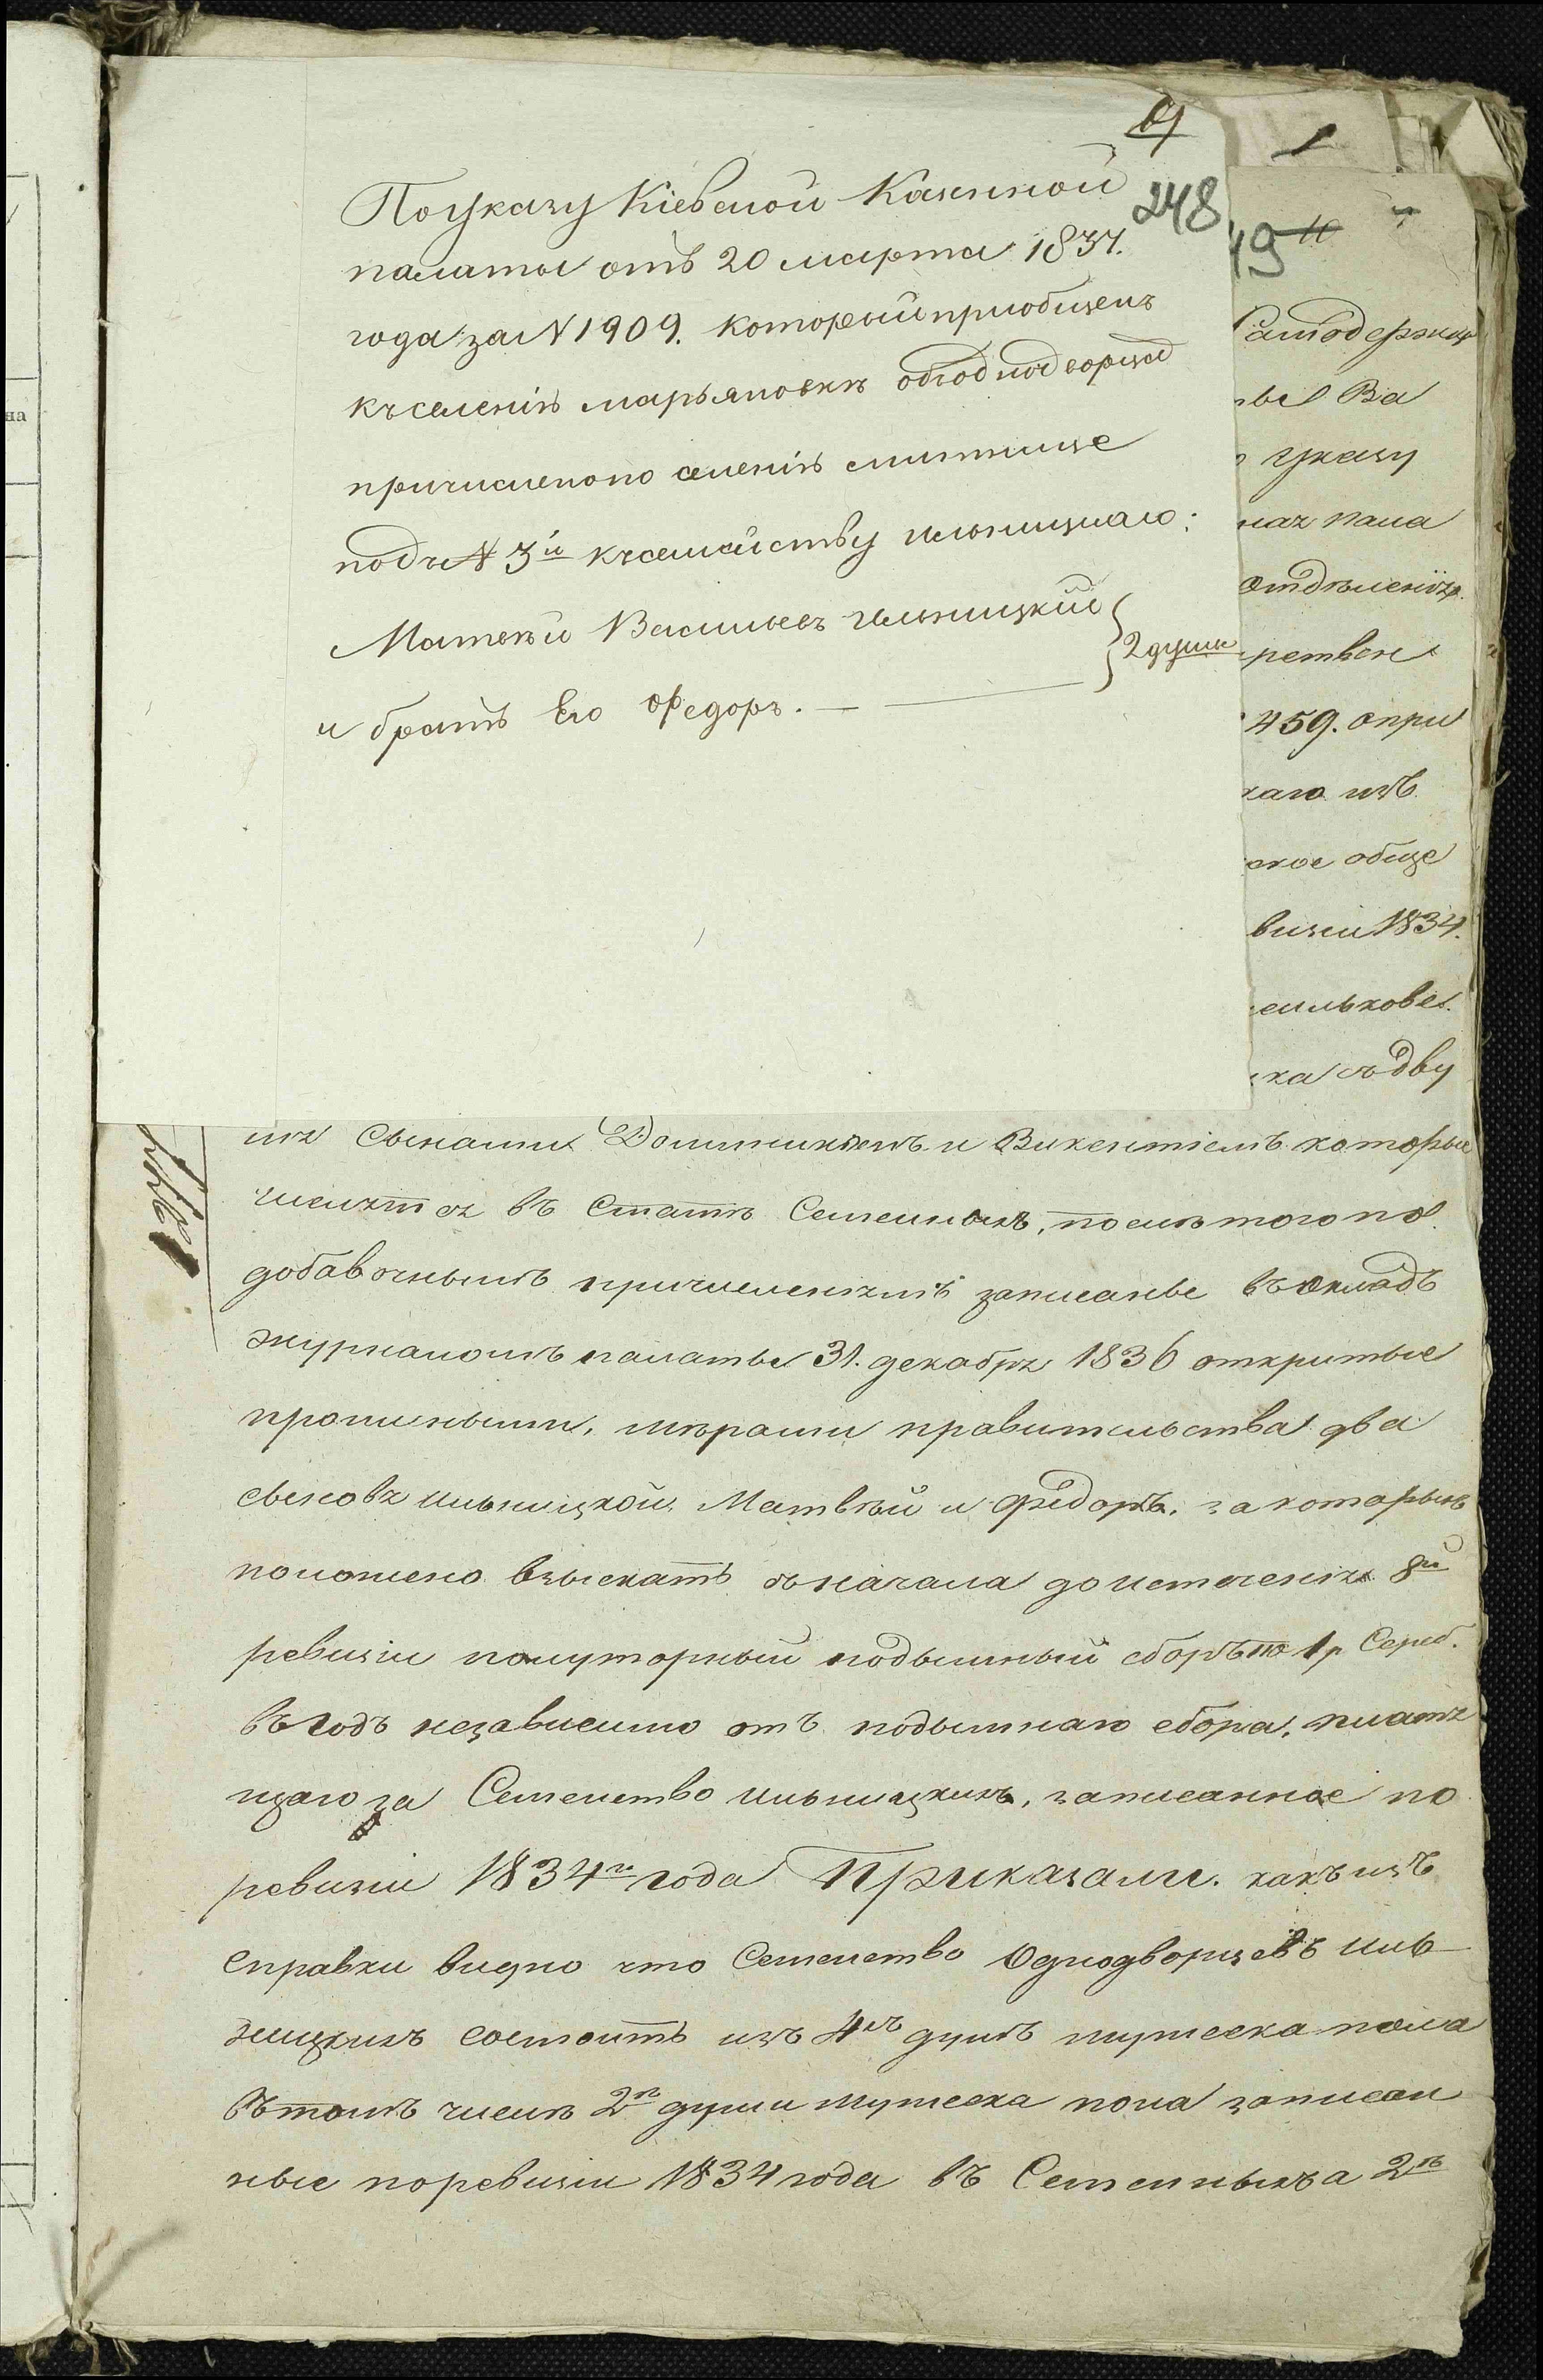 на
Поуказу Кіевской Казенной
палаты отъ 20 марта 1837.
248
года за N 1909. который приобщенъ
къ селенію марьяновкѣ объ однодворцахъ
причислено по селенію
подъ N 3й къ семейству ильницкаго:
Матвей Васильевъ ильницкій
2 души
и братъ Его Федоръ.
49
Самодержца
вы Ва
указу
ная пала
отдѣленія
459. о при
каго изъ
ское обще
визіи 1834.
сильков
ка съ дву
мя Сынами Доминикомъ и Викентіемъ которые
числятся въ Статѣ Семейныхъ, послѣ того по
добавочнымъ причисленіямъ записаные въ окладъ
журналомъ палаты 31. декабря 1836 открытые
мѣрами правительства два
сыновя ильницкой Матвѣй и Фѣдоръ, за которыхъ
положено взыскать съ начала до истеченія 8й
ревизіи полуторный подымный сборъ по 1 р Сереб.
въ годъ независимо отъ подымнаго сбора, платя
щаго за Семейство ильницкихъ, записанное по
ревизіи 1834го года Приказали. какъ изъ
справки видно что Семейство Однодворцевъ иль
ницкихъ состоитъ изъ 4хъ душъ мужеска пола
въ томъ числѣ 2ѣ души мужеска пола записан
ные по ревизіи 1834 года въ Семейныхъ а 2ѣ